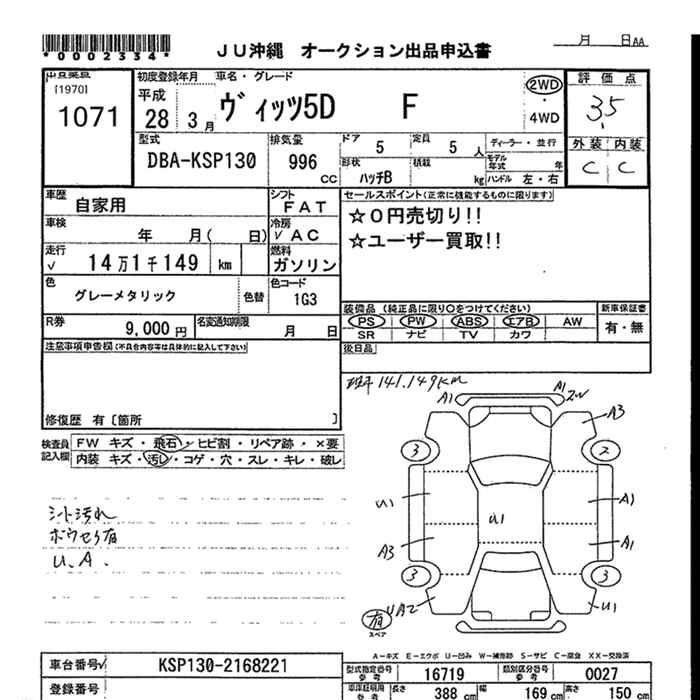 *0002334*
JU沖縄 オークション出品申込書
月 日AA
[1970]
1071
初度登録年月
平成
28 3月
車名・グレード
ヴィッツ5D F
2WD
・
4WD
評価点
3.5
外装 内装
C C
型式
DBA-KSP130
排気量
996 CC
ドア
5
定員
5 人
形状
ハッチB
積載
kg
ディーラー・並行
モデル年式 年
ハンドル 左・右
車歴
自家用
シフト
FAT
車検
年 月( 日)
冷房
√AC
走行
√ 14万1千149 km
燃料
ガソリン
色
グレーメタリック
色替
色コード
1G3
R券
9,000円
名変通知期限
月 日
セールスポイント(正常に機能するものに限ります)
☆0円売切り!!
☆ユーザー買取!!
装備品 (純正品に限り○をつけてください)
PS PW ABS エアB AW
SR ナビ TV カワ
新車保証書
有・無
後日品
注意事項申告欄(不具合内容等は具体的に記入して下さい)
修復歴 有〔箇所 〕
検査員記入欄
FW キズ・飛石・ヒビ割・リペア跡・×要
内装 キズ・汚し・コゲ・穴・スレ・キレ・破レ
141,149km
A1 A1 2W
A3
3 2
U1 A1
U1
A3 A1
3 3
UA2 U1
有
スペア
シート汚れ
ボウセリ有
U、A.
A-キズ E-エクボ U-凹み W-補修跡 S-サビ C-腐食 XX-交換済
車台番号√ KSP130-2168221
登録番号
型式指定番号参考 16719
類別区分番号参考 0027
長さ 388 cm
幅 169 cm
高さ 150 cm